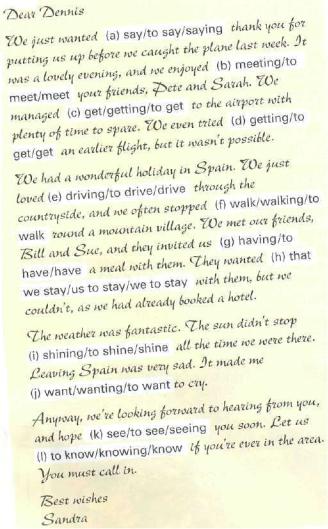 Dear Dennis
We just wanted (a) say/to say/saying thank you for
putting us up before we caught the plane last week. It
was a lovely evening, and we enjoyed (b) meeting/to
meet/meet your friends, Pete and Sarah. We
managed (c) get/getting/to get to the airport with
plenty of time to spare. We even tried (d) getting/to
get/get an earlier flight, but it wasn't possible.
We had a wonderful holiday in Spain. We just
loved (e) driving/to drive/drive through the
countryside, and we often stopped (f) walk/walking/to
walk round a mountain village. We met our friends,
Bill and Sue, and they invited us (g) having/to
have/have a meal with them. They wanted (h) that
we stay/us to stay/we to stay with them, but we
couldn't, as we had already booked a hotel.
The weather was fantastic. The sun didn't stop
(i) shining/to shine/shine all the time we were there.
Leaving Spain was very sad. It made me
(j) want/wanting/to want to cry.
Anyway, we're looking forward to hearing from you,
and hope (k) see/to see/seeing you soon. Let us
(l) to know/knowing/know if you're ever in the area.
You must call in.
Best wishes
Sandra